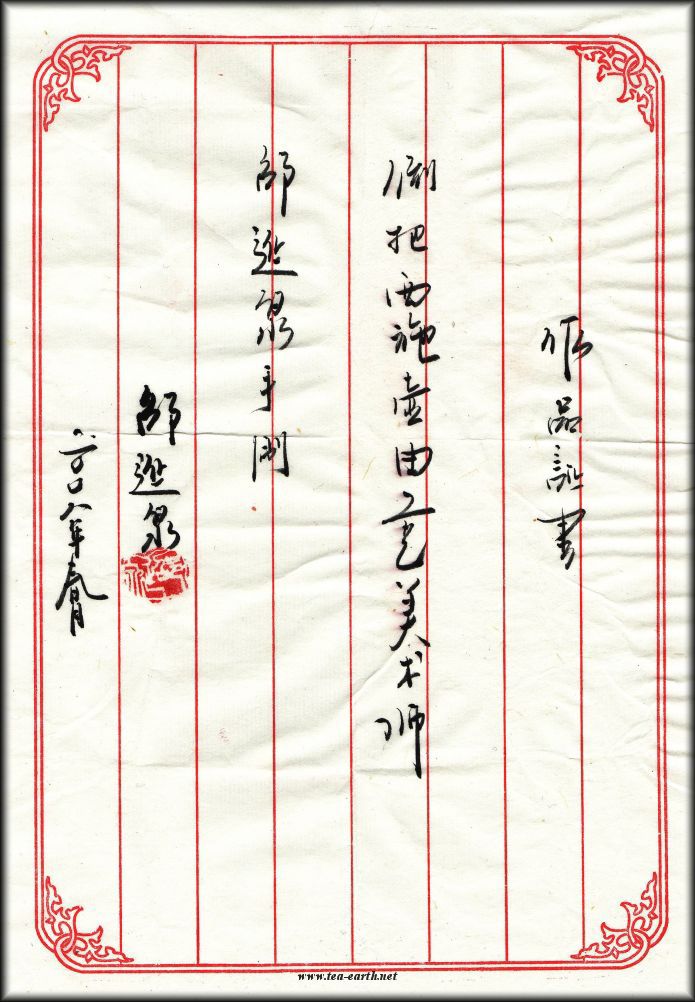 作品証書
侧把西施壶由工艺美术师
邵進泉手制
邵進泉
二〇〇八年春月
www.tea-earth.net